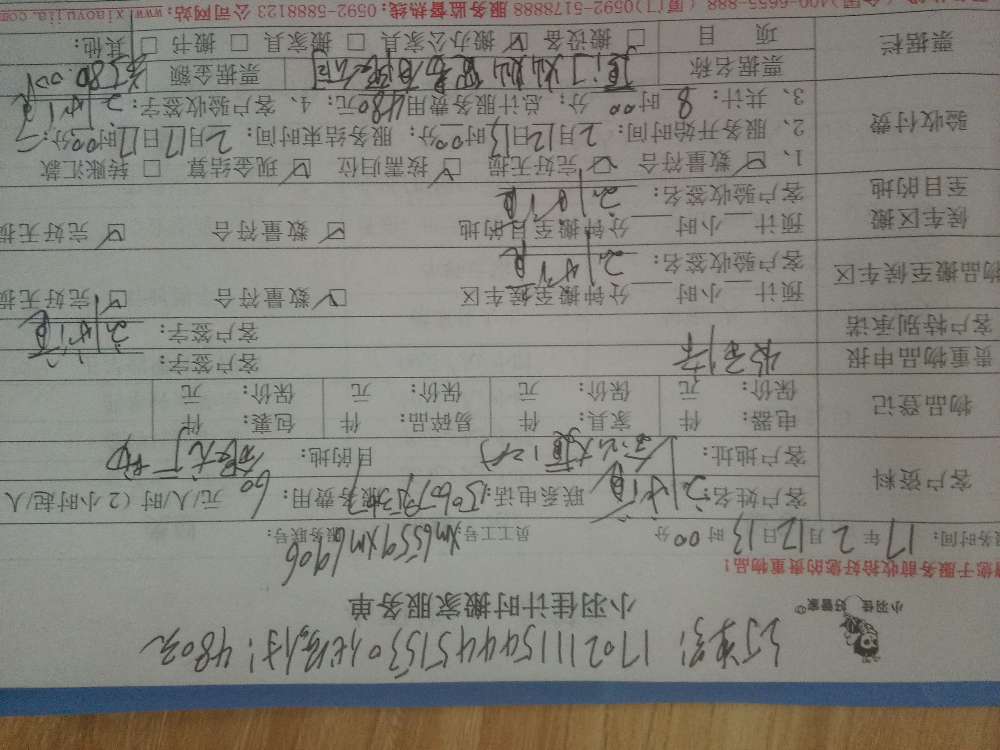 订单号：17021115444515530 代付：480元
小羽佳 好管家
小羽佳计时搬家服务单
您于服务前收拾好您的贵重物品！
服务时间：17年2月12日13时00分 员工工号：xm6559 xm6906 服务联号：
客户资料
客户姓名： 联系电话： 服务费用：60元/人/时（2小时起/人
客户地址： 目的地：
物品登记
电器： 件 家具： 件 易碎品： 件 包裹： 件
保价： 元 保价： 元 保价： 元 保价： 元
贵重物品申报 客户签字：
客户特别承诺 客户签字：
物品搬至候车区
预计 小时 分钟搬至候车区 数量符合 完好无损
客户验收签名：
候车区搬至目的地
预计 小时 分钟搬至目的地 数量符合 完好无损
客户验收签名：
验收付费
1、数量符合 完好无损 按需归位 现金结算 转账汇款
2、服务开始时间：2月12日13时00分；服务结束时间：2月17日17时00分；
3、共计：8时00分；总计服务费用480元；4、客户验收签字：
票据栏
票据名称 票据金额
项目 搬设备 搬办公家具 搬家具 搬书 其他：
400-6655-888（厦门)0592-5178888 服务监督热线：0592-5888123 公司网站：www.xiaoyujia.com